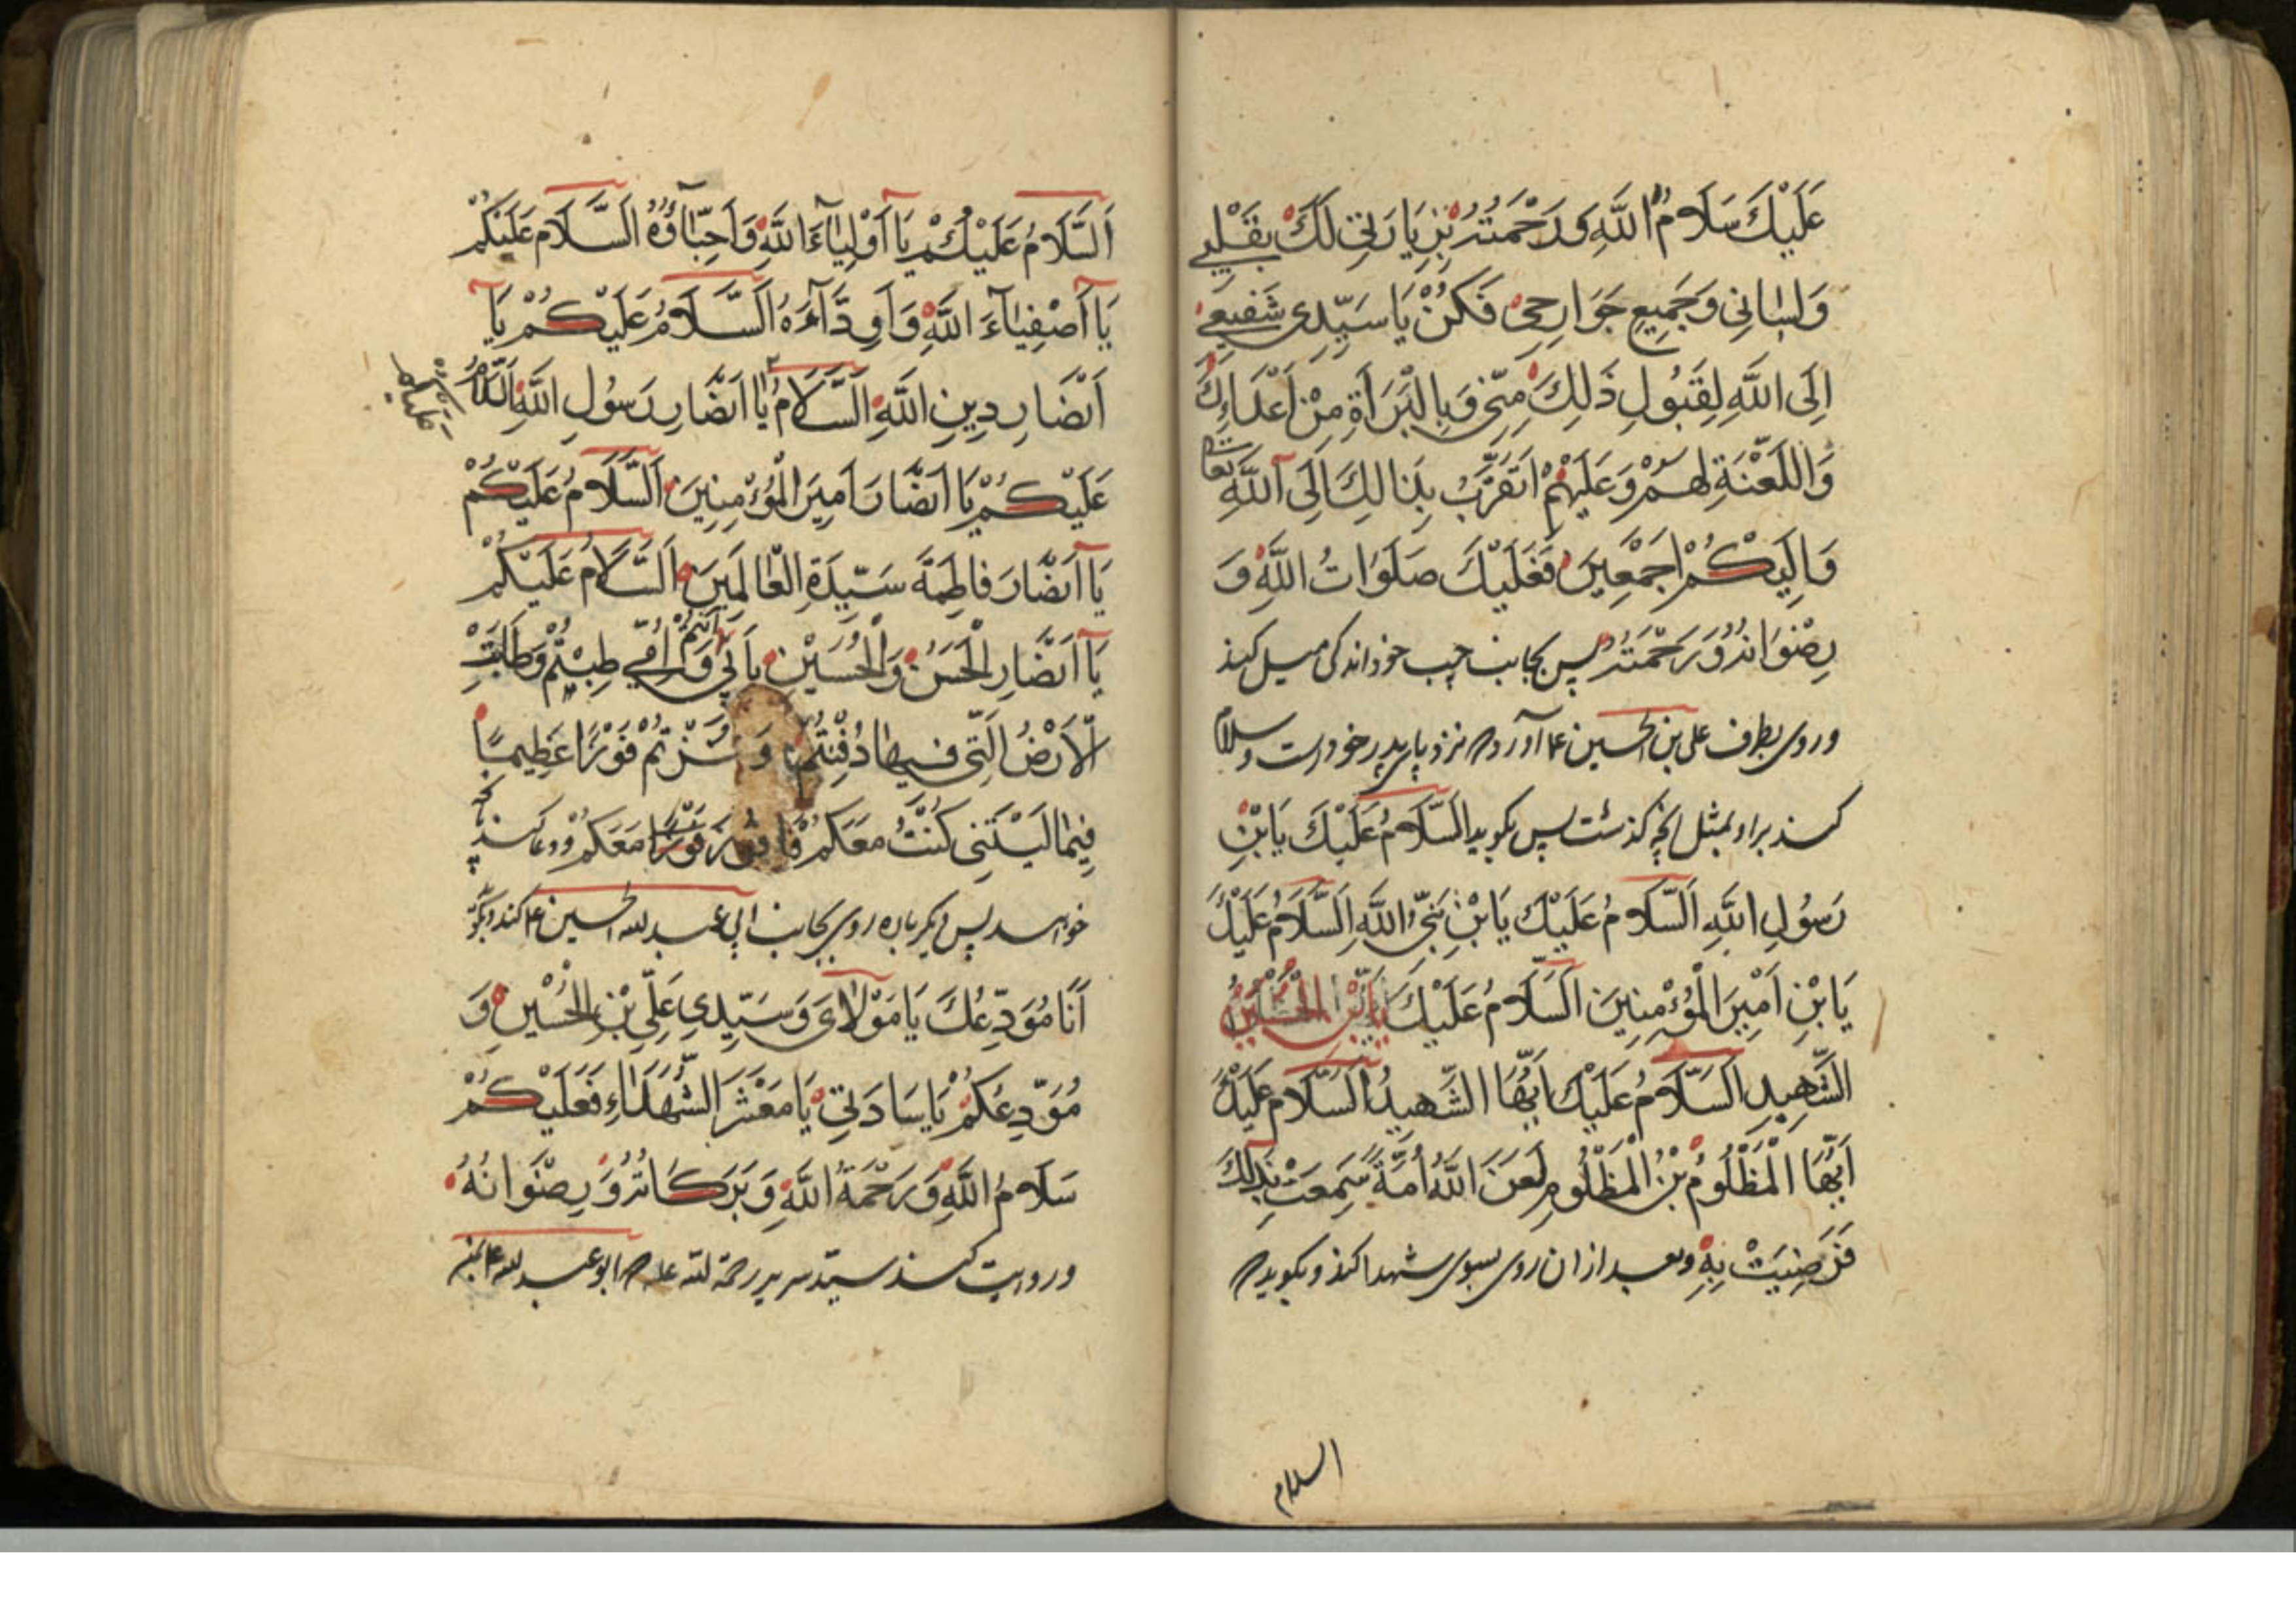 عَلَيْكَ سَلَامُ اللَّهِ وَرَحْمَتُهُ بِزِيَارَتِي لَكَ بِقَلْبِي
وَلِسَانِي وَجَمِيعِ جَوَارِحِي فَكُنْ يَا سَيِّدِي شَفِيعِي
اِلَى اللَّهِ لِقَبُولِ ذَلِكَ مِنِّي وَبِالْبَرَاَةِ مِنْ اَعْدَاءِكَ
وَاللَّعْنَةِ لَهُمْ وَعَلَيْهِمْ اَتَقَرَّبُ بِذَالِكَ اِلَى اللَّهِ تعالى
وَاِلَيْكُمْ اَجْمَعِينَ فَعَلَيْكَ صَلَوَاتُ اللَّهِ وَ
رِضْوَانُهُ وَرَحْمَتُهُ پس بجانب چپ خود اندکی میل کند
و روی بطرف علی بن الحسین ع آورد که نزد پای پدر خود است و سلام
کند بر او بمثل انچه کذشت پس بکوید اَلسَّلَامُ عَلَيْكَ يَابْنَ
رَسُولِ اللَّهِ اَلسَّلَامُ عَلَيْكَ يَابْنِ نَبِيِّ اللَّهِ اَلسَّلَامُ عَلَيْكَ
يَابْنِ اَمْيِرَ الْمُؤْمِنِينَ اَلسَّلَامُ عَلَيْكَ يَابْنَ الْحُسَيْنِ
الشَّهِيدِ اَلسَّلَامُ عَلَيْكَ اَيُّهَا الشَّهِيدُ اَلسَّلَامُ عَلَيْكَ
اَيُّهَا الْمَظْلُومُ بْنُ الْمَظْلُومِ لَعَنَ اللَّهُ اُمَّةً سَمِعَتْ بِذَلِكَ
فَرَضِيَتْ بِهِ و بعد از ان روی بسوی شهدا کند و بکوید که
السلام
اَلسَّلَامُ عَلَيْكُمْ يَا اَوْلِيَاءَ اللَّهِ وَاَحِبَّاؤُهُ اَلسَّلَامُ عَلَيْكُمْ
يَا اَصْفِيَاءَ اللَّهِ وَاَوِدَّاءَهُ اَلسَّلَامُ عَلَيْكُمْ يَا
اَنْصَارِ دِينِ اللَّهِ اَلسَّلَامُ يَا اَنْصَارِ رَسُولِ اللَّهِ اَلسَّلَامُ
عَلَيْكُمْ يَا اَنْصَارَ اَمِيرَ الْمُؤْمِنِينَ اَلسَّلَامُ عَلَيْكُمْ
يَا اَنْصَارَ فَاطِمَةَ سَيِّدَةِ الْعَالَمِيَنَ اَلسَّلَامُ عَلَيْكُمْ
يَا اَنْصَارِ الْحَسَنُ وَالْحُسَيْنِ بِاَبِي اَنْتُمْ وَاُمِّي طِبْتُمْ وَطَابَتْ
الْاَرْضُ الَّتِي فِيهَا دُفِنْتُمْ وَفُزْتُمْ فَوْزًا عَظِيمًا
فِيمَا لَيْتَنِي كُنْتُ مَعَكُمْ فَافوزَ فَوْزًا مَعَكُمْ و دعا کند بهرچه
خواهد پس دیکر باره روی بجانب ابی عبد الله الحسین ع کند و بکوید
اَنَا مُوَدِّعُكَ يَا مَوْلَايَ وَسَيِّدِي عَلِيِّ بْنِ الْحُسَيْنِ وَ
مُوَدِّعُكُمْ يَا سَادَتِي يَا مَعْشَرَ الشُّهَدَاءِ فَعَلَيْكُمْ
سَلَامُ اللَّهِ وَرَحْمَةُ اللَّهِ وَبَرَكَاتُهُ وَرِضْوَانُهُ
و روایت کند سدیر رحمة الله علیه که ابو عبد الله ع